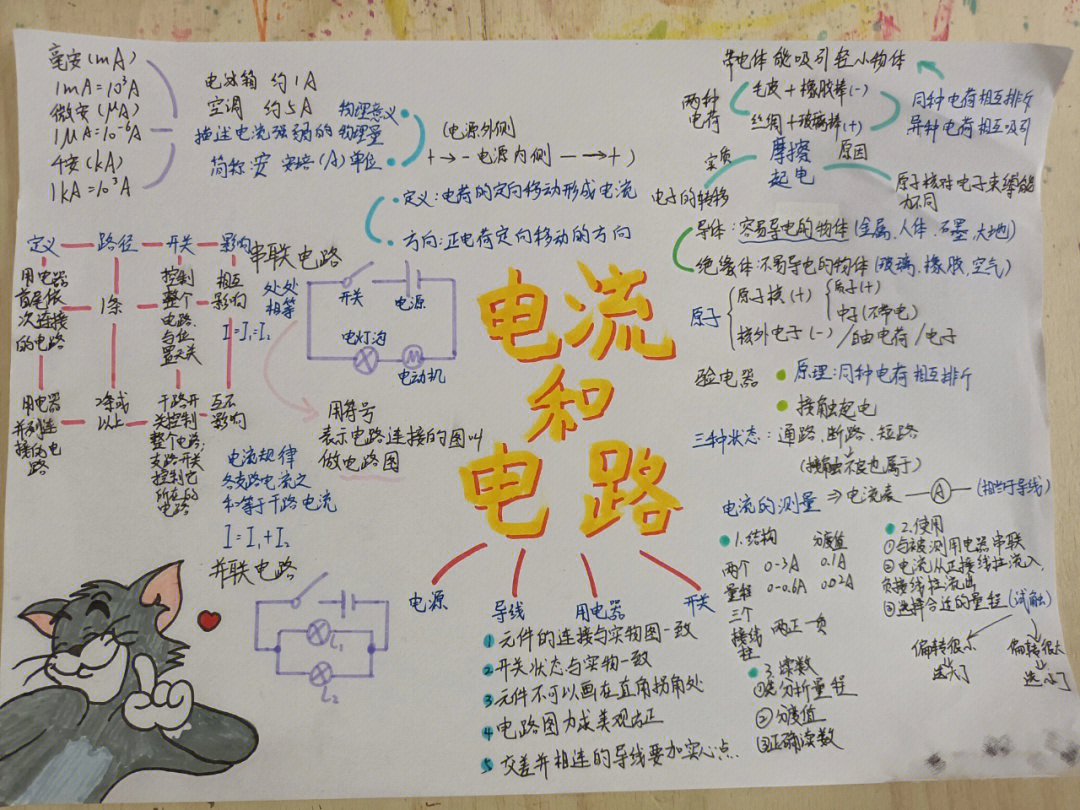 毫安(mA)
1mA=10³A
微安(μA)
1μA=10⁻⁶A
千安(kA)
1kA=10³A
电冰箱 约1A
空调 约5A
物理意义
描述电流强弱的物理量
简称:安 安培(A)单位
(电源外侧)
+→-电源内侧 -→+)
定义:电荷的定向移动形成电流
方向:正电荷定向移动的方向
带电体能吸引轻小物体
两种电荷
毛皮+橡胶棒(-)
丝绸+玻璃棒(+)
同种电荷相互排斥
异种电荷相互吸引
实质
摩擦起电
原因
电子的转移
原子核对电子束缚能
力不同
导体:容易导电的物体(金属、人体、石墨、大地)
绝缘体:不易导电的物体(玻璃、橡胶、空气)
原子
原子核(+)
质子(+)
中子(不带电)
核外电子(-)/自由电荷/电子
验电器
原理:同种电荷相互排斥
接触起电
三种状态:通路、断路、短路
(接触不良也属于)
电流的测量⇒电流表 A (相当于导线)
1.结构
分度值
两个量程
0-3A 0.1A
0-0.6A 0.02A
三个接线柱
两正一负
2.使用
①与被测用电器串联
②电流从正接线柱流入,
负接线柱流出
③选择合适的量程(试触)
偏转很小
选大了
偏转很大
选小了
3.读数
①先分析量程
②分度值
③正确读数
定义 路径 开关 影响
用电器
首尾依
次连接
的电路
1条
控制
整个
电路,
与位
置无关
相互
影响
I=I₁=I₂
用电器
并列连
接的电
路
2条或
以上
干路开
关控制
整个电路;
支路开关
控制它
所在的
电路
互不
影响
串联电路
处处
相等
开关
电源
电灯泡
电动机
M
用符号
表示电路连接的图叫
做电路图
电流规律
各支路电流之
和等于干路电流
I=I₁+I₂
并联电路
L₁
L₂
电流
和
电路
电源
导线
用电器
开关
1 元件的连接与实物图一致
2 开关状态与实物一致
3 元件不可以画在直角拐角处
4 电路图力求美观方正
5 交叉并相连的导线要加实心点.